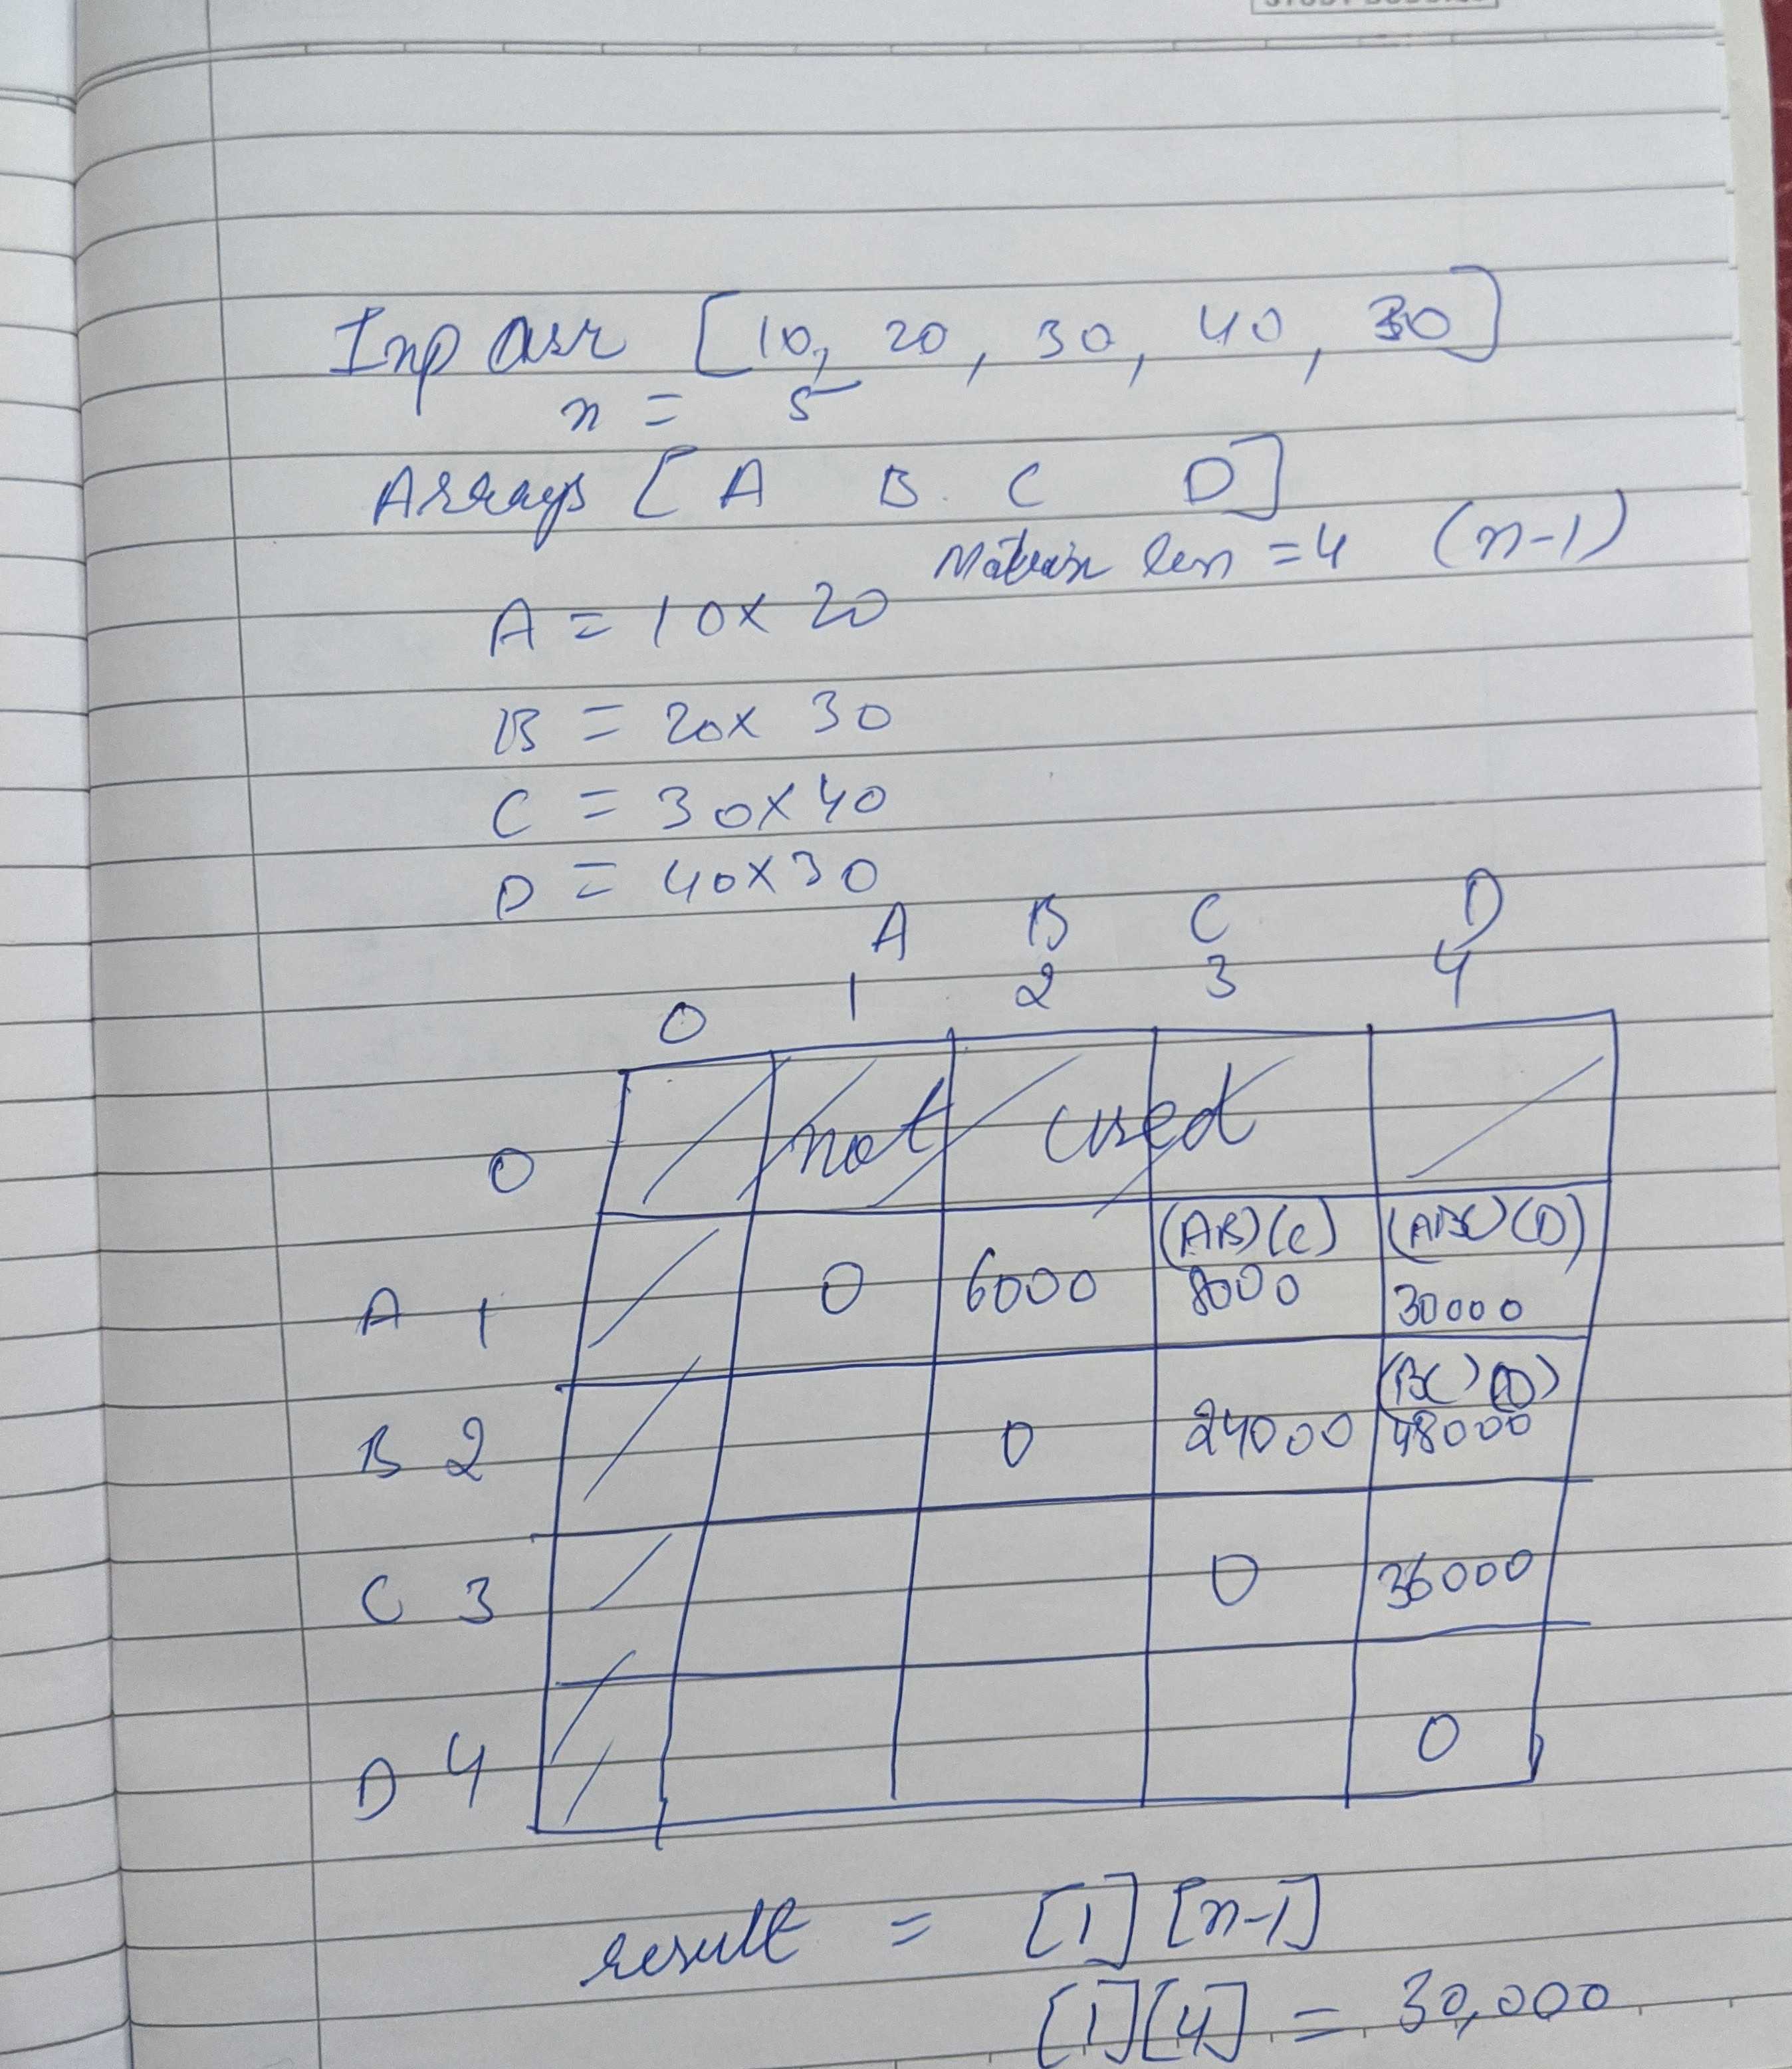 Inp arr [10, 20, 30, 40, 30]
n = 5
Arrays [ A B. C D]
Matrix len = 4 (n-1)
A = 10 x 20
B = 20 x 30
C = 30 x 40
D = 40 x 30
A B C D
0 1 2 3 4
0 not used
(AB)(C) (ABC)(D)
A 1 0 6000 8000 30000
(BC)(D)
B 2 0 24000 48000
C 3 0 36000
D 4 0
result = [1][n-1]
[1][4] = 30,000